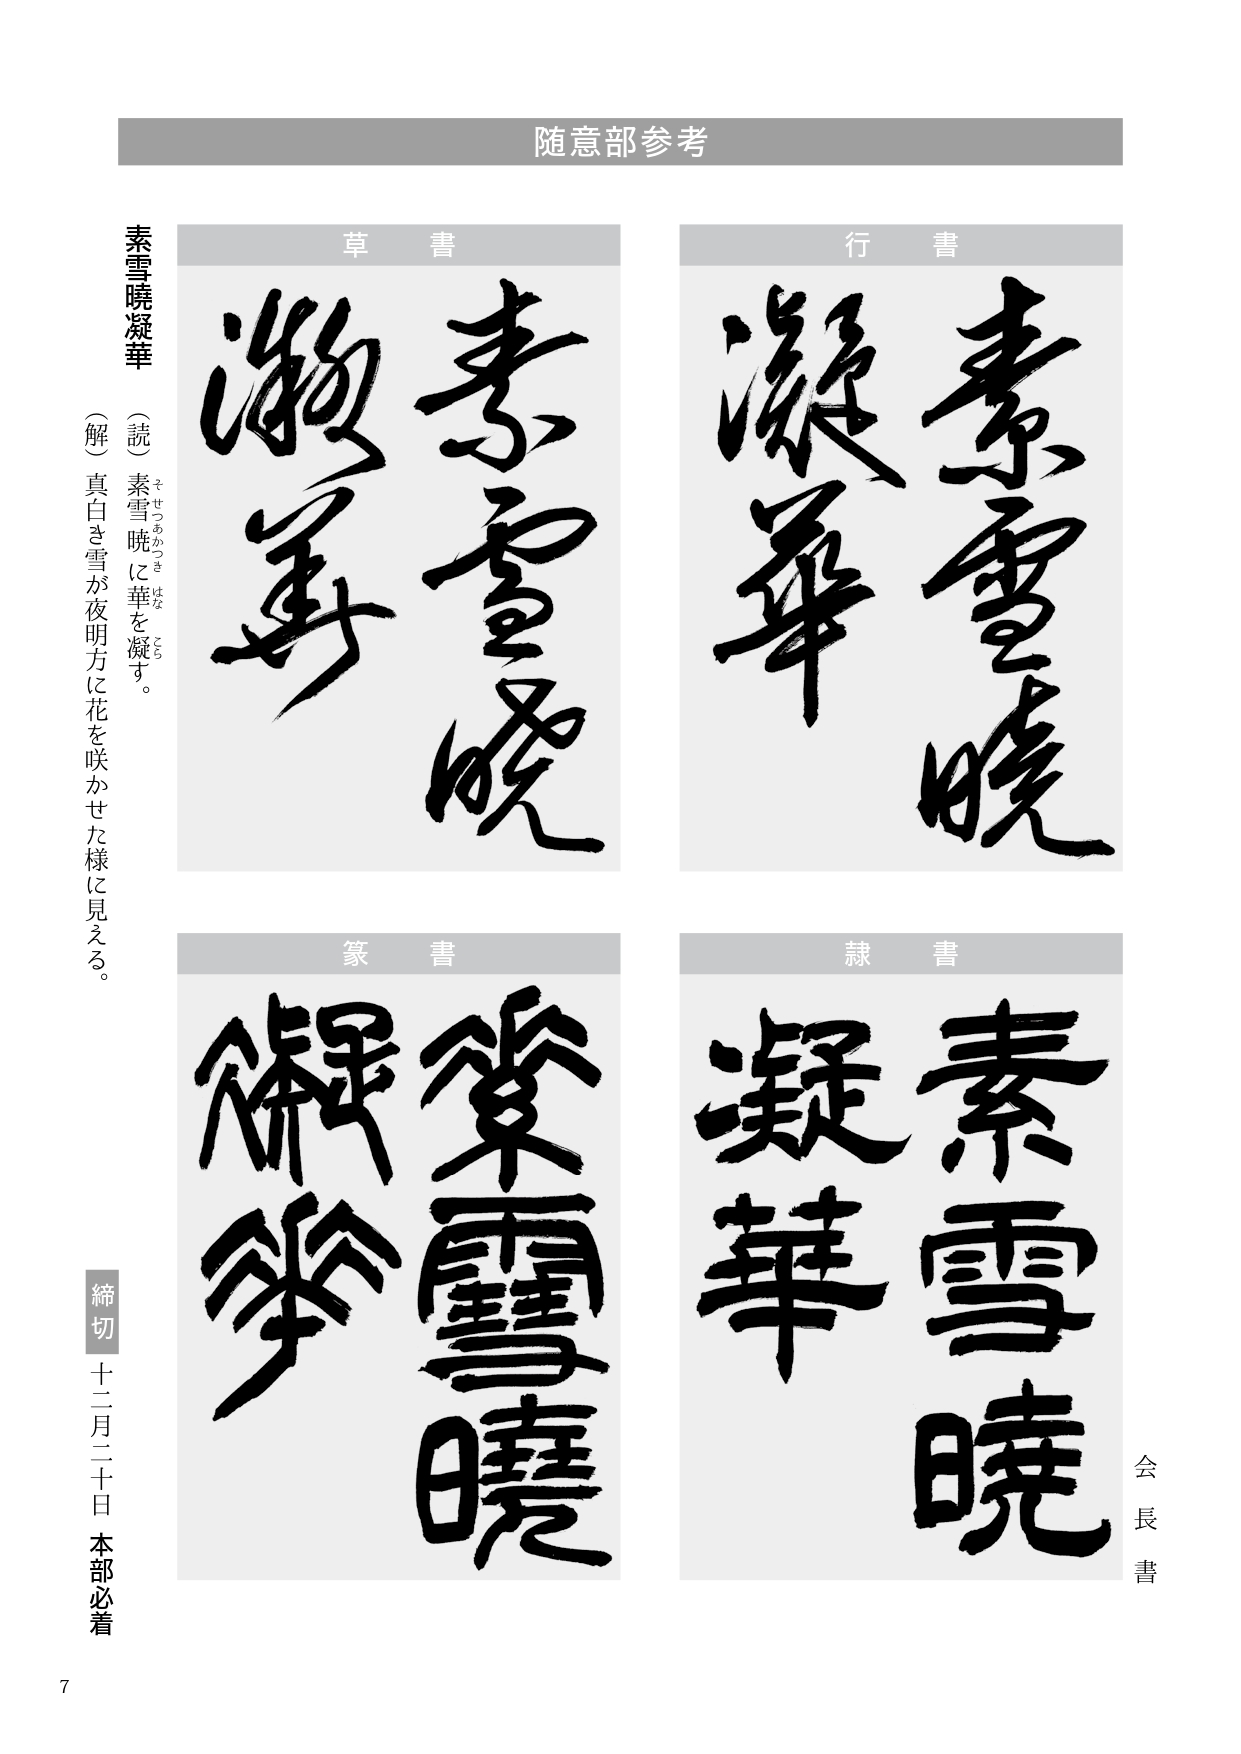 随意部参考
行書
素雪曉
凝華
草書
素雪曉
凝華
隷書
素雪曉
凝華
篆書
素雪曉
凝華
会長書
素雪曉凝華
（読）素雪暁に華を凝す。
そせつあかつき はな こら
（解）真白き雪が夜明方に花を咲かせた様に見える。
締切 十二月二十日 本部必着
7